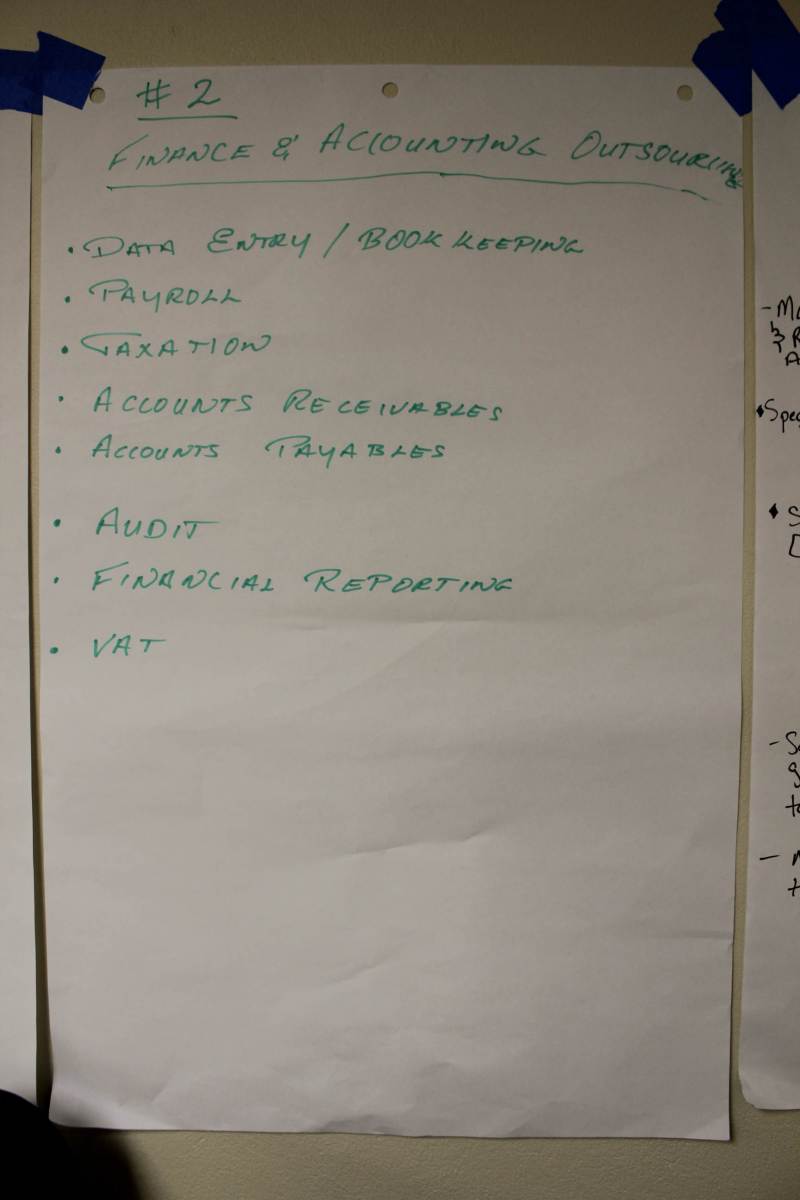 #2
FINANCE & ACCOUNTING OUTSOURCING
• DATA ENTRY / BOOKKEEPING
• PAYROLL
• TAXATION
• ACCOUNTS RECEIVABLES
• ACCOUNTS PAYABLES
• AUDIT
• FINANCIAL REPORTING
• VAT